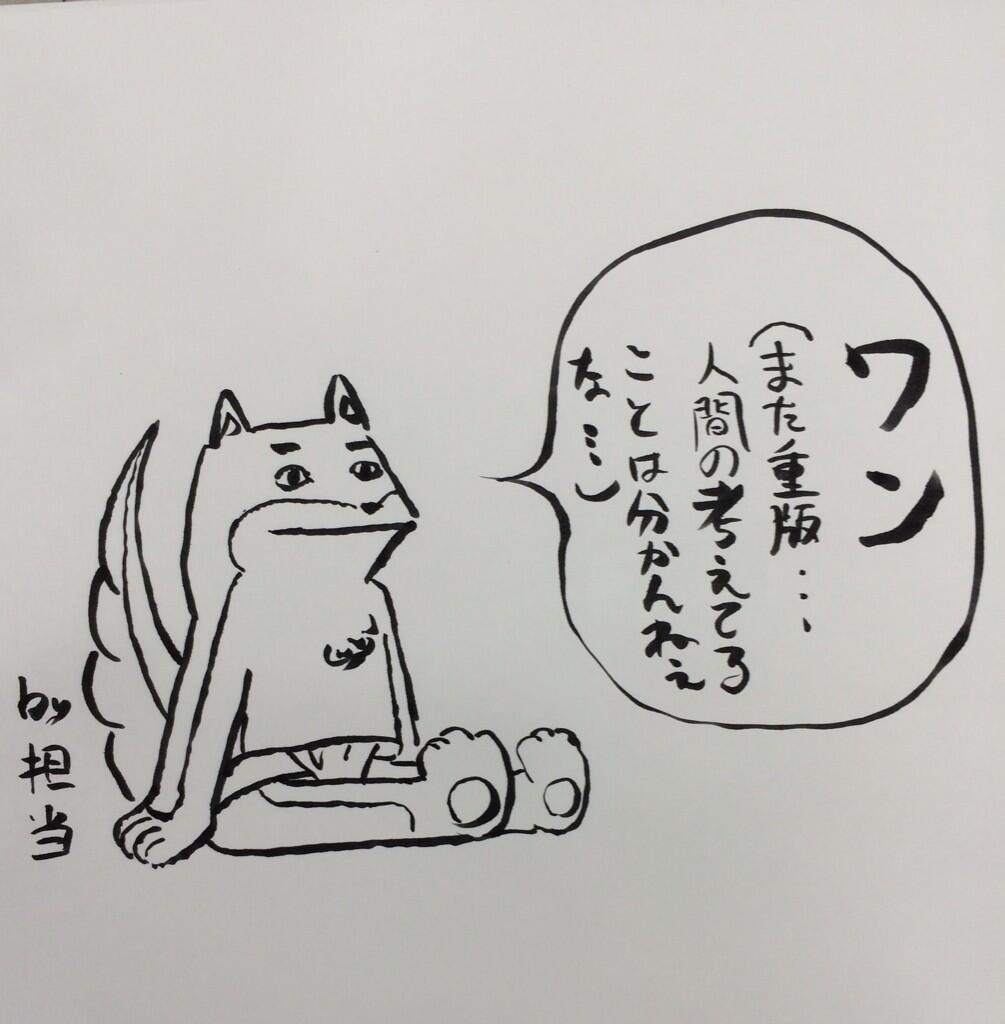 ワン
(また重版…
人間の考えてる
ことは分かんねぇ
な…)
by担当